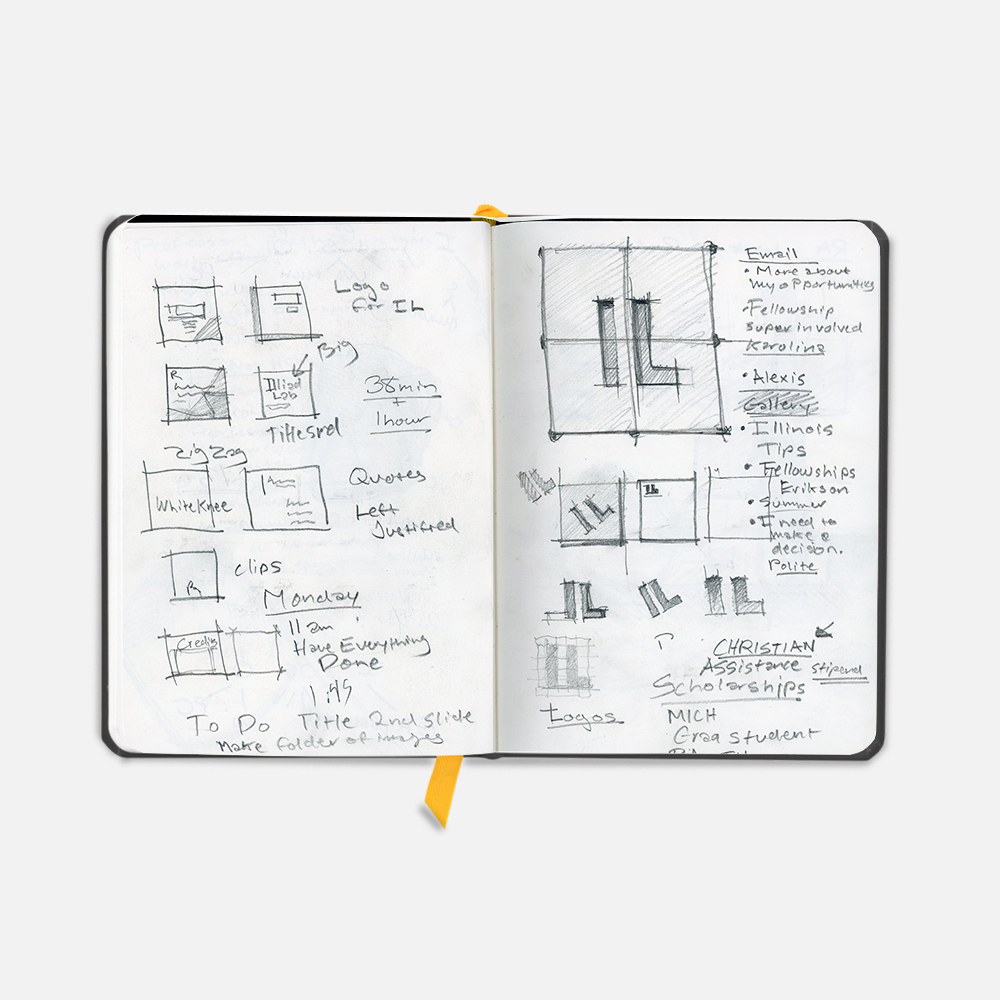 Logo
for IL
Big
R
Iliad
Lab
38min
+
1hour
Zig Zag
WhiteKnee
Quotes
Left
Justified
R
clips
Monday
11 am
Have Everything
Done
Credits
1:45
To Do Title 2nd Slide
Make folder of images
IL
IL
IL
IL
IL
IL
IL
IL
IL
Logos
Email
• More about
my opportunities
• Fellowship
super involved
Karoline
• Alexis
Gallery
• Illinois
Tips
• Fellowships
Erikson
• Summer
• I need to
make a
decision.
Polite
CHRISTIAN
Assistance stipend
Scholarships
MICH
Grad student